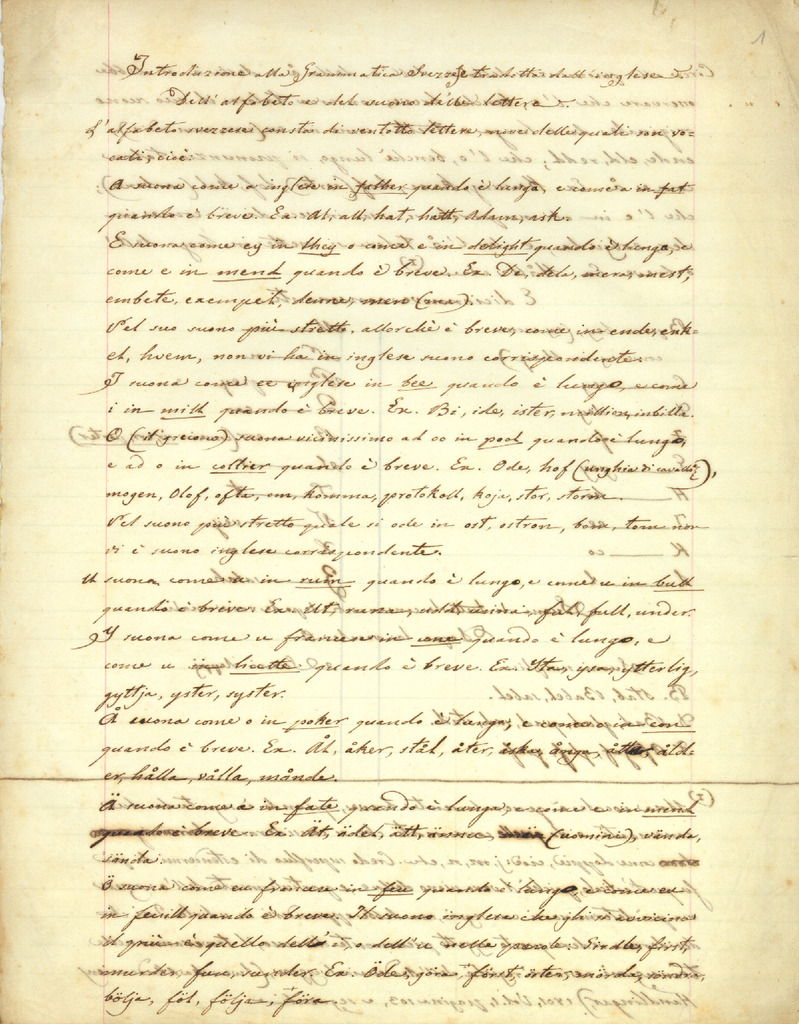 1
Introduzione alla Grammatica Svezzese tradotta dall'inglese.
Dell'alfabeto e del suono delle lettere.
L'alfabeto svezzese consta di ventotto lettere, nove delle quali son vo=
cali, cioè:
A suona come a inglese in father quando è lunga, e come a in fat
quando è breve. Ex. Al, all, hat, hatt, Adam, ask.
E suona come ey in they o come e in delight quando è lunga, e
come e in mend quando è breve. Ex. De, dela, mera, mest,
embete, exempel, denne, men (ma).
Nel suo suono più stretto, allorchè è breve, come in ende, enk=
el, hvem, non vi ha in inglese suono corrispondente.
I suona come ee inglese in bee quando è lungo, e come
i in milk quando è breve. Ex. Bi, ide, ister, million, inbilla.
O (it. greciono) suona vicinissimo ad oo in pool quando è lungo,
e ad o in collier quando è breve. Ex. Ode, hof (unghia di cavallo),
mogen, Olof, ofta, om, komma, protokoll, koja, stor, storm.
Nel suono più stretto quale si ode in ost, ostron, bom, tom non
vi è suono inglese corrispondente.
U suona come u in ruin quando è lungo, e come u in bull
quando è breve. Ex. Ut, runa, udd, ful, full, under.
Y suona come u francese in une quando è lungo, e
come u in lucette quando è breve. Ex. Yta, ysa, ytterlig,
gyttja, yster, syster.
Å suona come o in poker quando è lungo, e come o in con
quando è breve. Ex. Ål, åker, stål, åter, åska, ånga, åtta, åld=
er, hålla, vålla, månde.
Ä suona come a in fate quando è lunga, e come e in mend
quando è breve. Ex. Ät, ädel, ätt, ännu, män (uomini), vända,
sända.
Ö suona come eu francese in feu quando è lungo, e come eu
in feuille quando è breve. Il suono inglese che gli s'avvicina
il più è quello dell'i o dell'u nelle parole: Girdle, first,
murder, fur, surder. Ex. Öde, göra, först, örter, mörda,
bölja, föl, följa, föra.